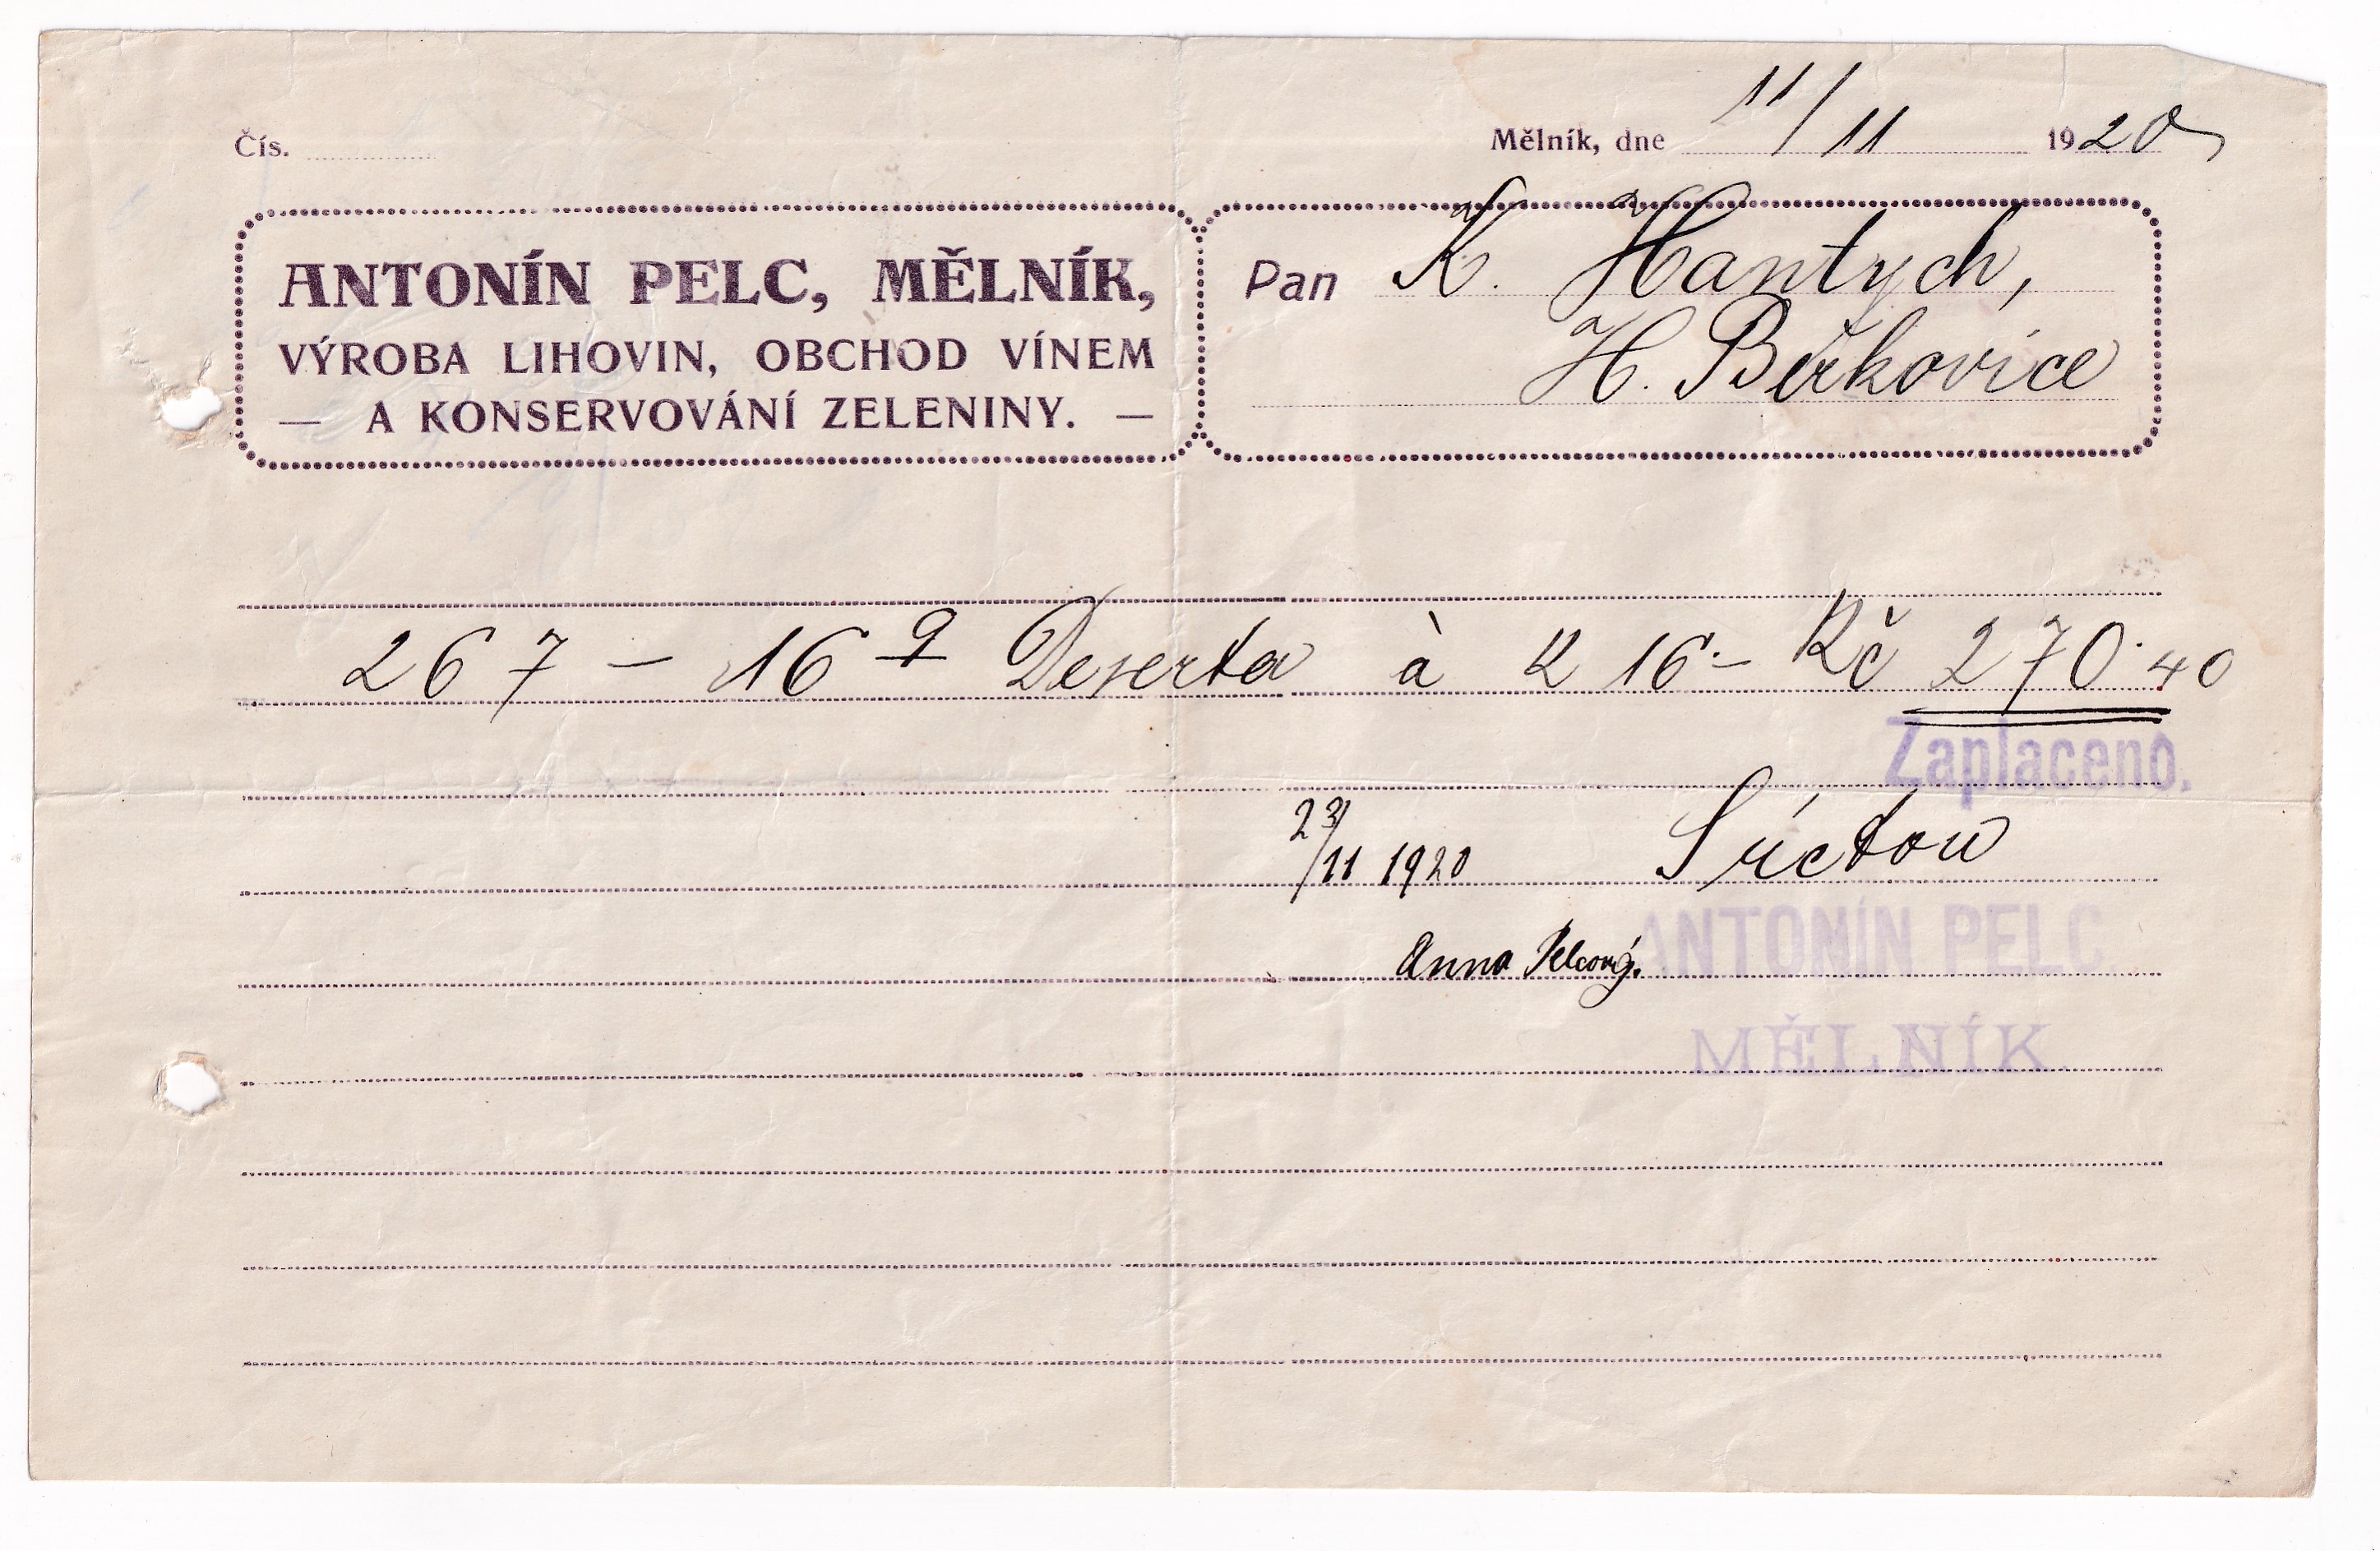 Čís.
Mělník, dne 11/11 1920
ANTONÍN PELC, MĚLNÍK,
VÝROBA LIHOVIN, OBCHOD VÍNEM
— A KONSERVOVÁNÍ ZELENINY. —
Pan K. Hantych,
H. Beřkovice
267 — 16 9 Deserta à K 16·– Kč 270·40
Zaplaceno.
23/11 1920
Anna Pelcová.
ANTONÍN PELC
MĚLNÍK.